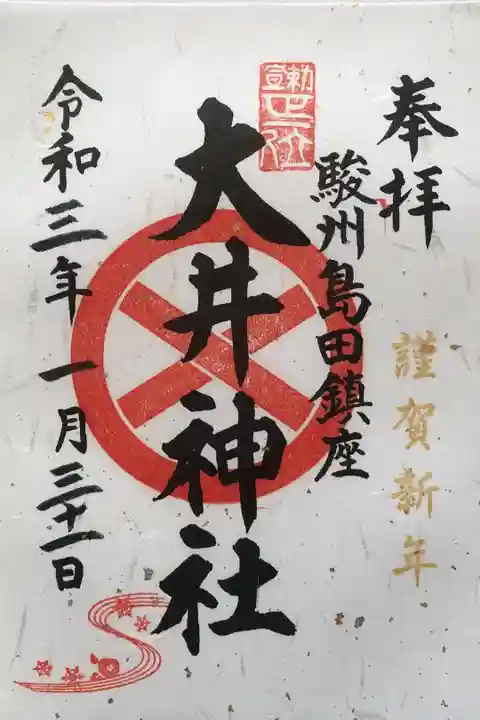 奉拝
謹賀新年
勅宣
正一位
駿州島田鎮座
大井神社
令和三年一月三十一日